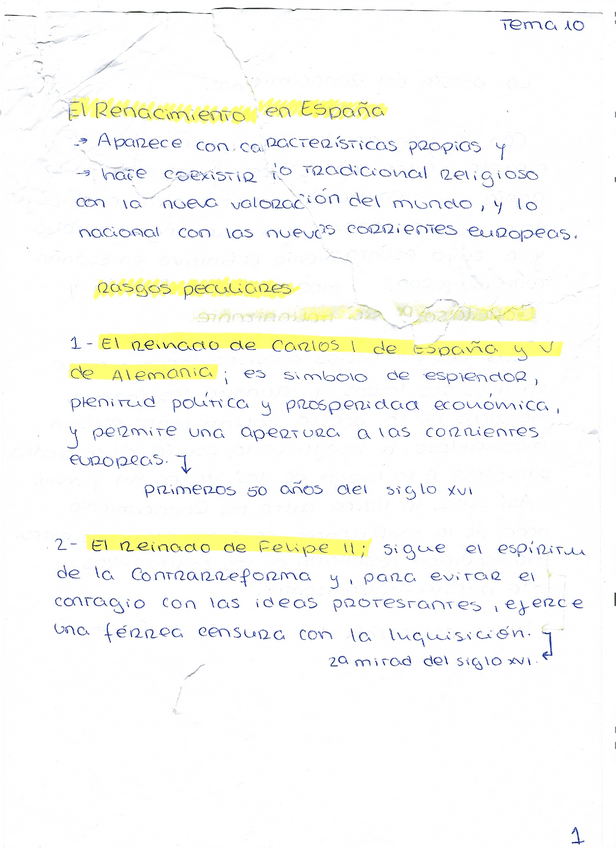 Tema 10
El Renacimiento en España
→ Aparece con características propias y
→ hace coexistir lo tradicional religioso
con la nueva valoración del mundo, y lo
nacional con las nuevas corrientes europeas.
Rasgos peculiares
1- El reinado de Carlos I de España y V
de Alemania; es simbolo de esplendor,
plenitud política y prosperidad económica,
y permite una apertura a las corrientes
europeas. ↓
primeros 50 años del siglo XVI
2- El reinado de Felipe II; sigue el espíritu
de la Contrarreforma y, para evitar el
contagio con las ideas protestantes, ejerce
una férrea censura con la Inquisición.
2a mitad del siglo XVI. ↵
1